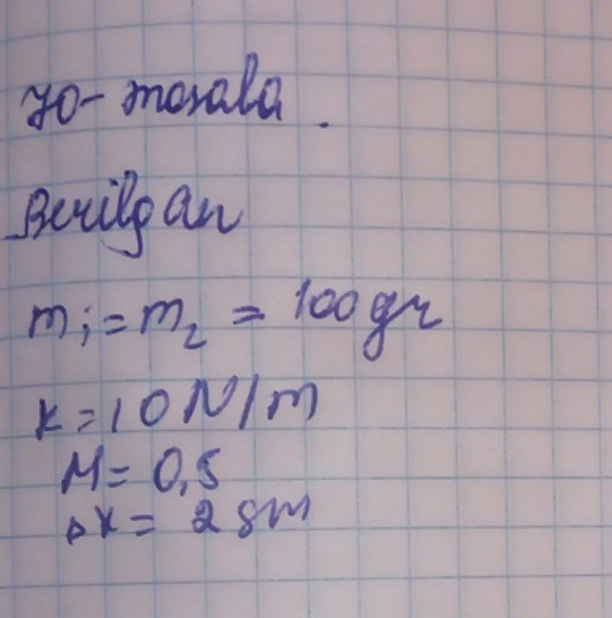 70-masala.
Berilgan
m₁=m₂ = 100gr
k=10N/m
M=0,5
Δx= 2sm